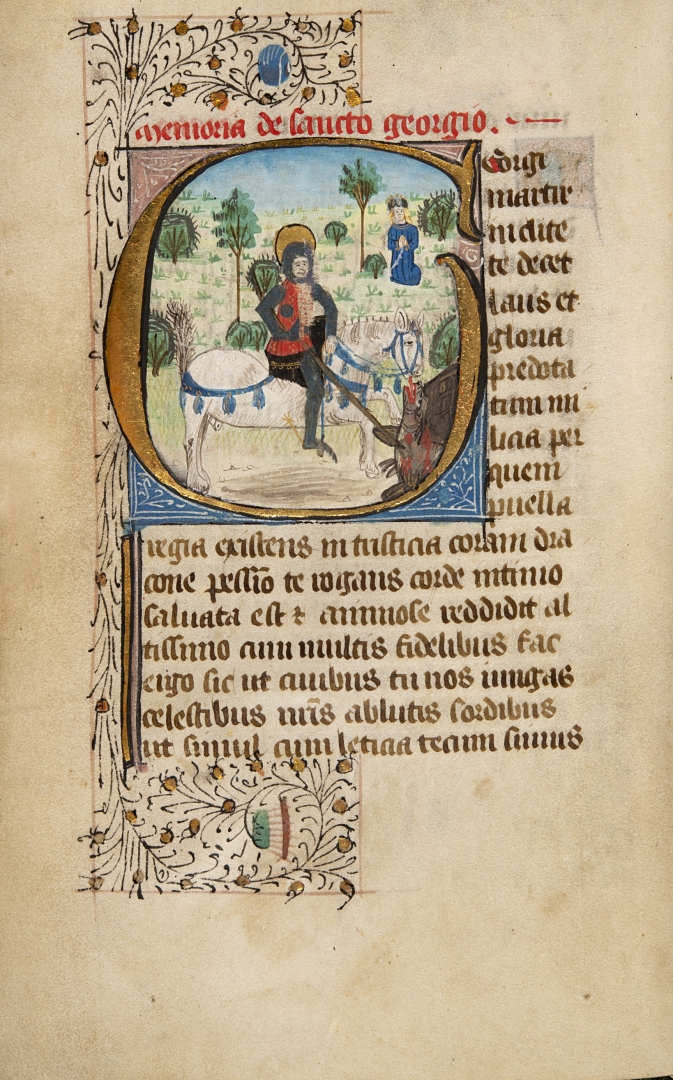 memoria de sancto georgio.
Georgi
martir
inclite
te decet
laus et
gloria
predota
tum mi
licia per
quem
puella
regia existens in tristicia coram dra
cone pessīo te rogans corde intimo
saluata est ⁊ animose reddidit al
tissimo cum multis fidelibus fac
ergo sic ut ciuibus tu nos iungas
celestibus nr̄is ablutis sordibus
ut simul cum leticia tecum simus